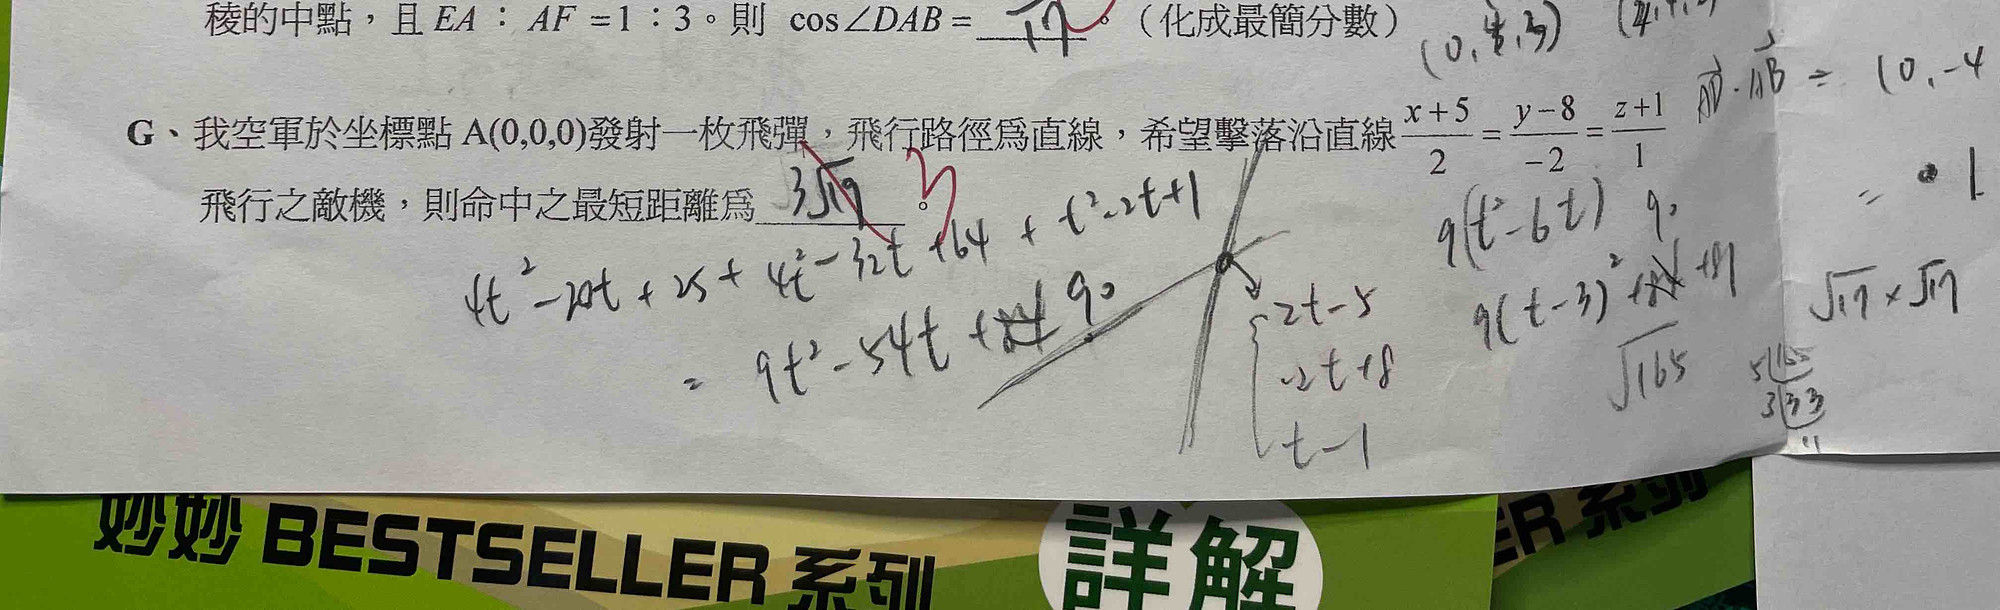 稜的中點，且 EA：AF =1：3。則 cos∠DAB= 。（化成最簡分數）
(0,4,3)
AD·AB = (0,-4
= 1
G、我空軍於坐標點 A(0,0,0)發射一枚飛彈，飛行路徑為直線，希望擊落沿直線 x+5/2 = y-8/-2 = z+1/1
飛行之敵機，則命中之最短距離為 3√19 。
4t²-20t+25+4t²-32t+64+t²-2t+1
= 9t²-54t+ 90
2t-5
-2t+8
t-1
9(t²-6t) 90
9(t-3)²+ +9
√165
√17×√17
3 33
11
妙妙 BESTSELLER 系列
詳解
ER 系列